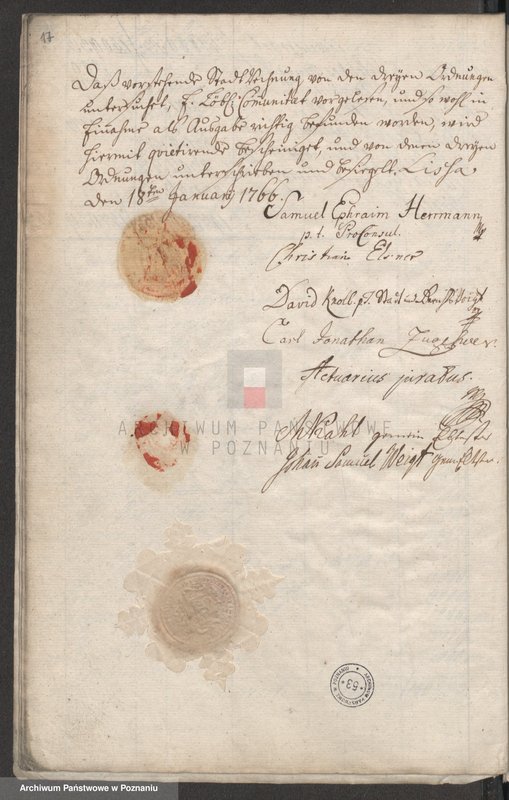 17
Daß vorstehende Stadt Rechnung von den dreyen Ordnungen
untersuchet, E. Löbl. Comunitæt vorgelesen, und so wohl in
Einahme als Ausgabe richtig befunden worden, wird
hiermit quietirende bescheiniget, und von denen dreyen
Ordnungen unterschrieben und besiegelt. Lissa
den 18ten January 1766.
Samuel Ephraim Herrmann
p. t. ProConsul.
Christian Elsner
David Knoll. p.T. Stadt Voigt
Carl Jonathan
Actuarius juratus.
Eltester
Johan Samuel Weigt
ARCHIWUM PAŃSTWOWE
W POZNANIU
ARCHIWUM PAŃSTWOWE W POZNANIU
53
Archiwum Państwowe w Poznaniu